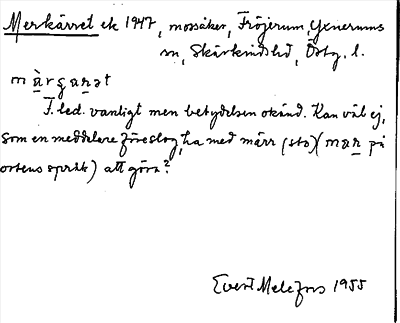 Merkärret ek 1947, mossåker, Fröjerum, Yxnerums
sn, Skärkinds hd, Östg. l.
màrgaṟət
F. led. vanligt men betydelsen okänd. Kan väl ej,
som en meddelare föreslog, ha med märr (sto) (maṟ på
ortens språk) att göra?
Evert Melefors 1955